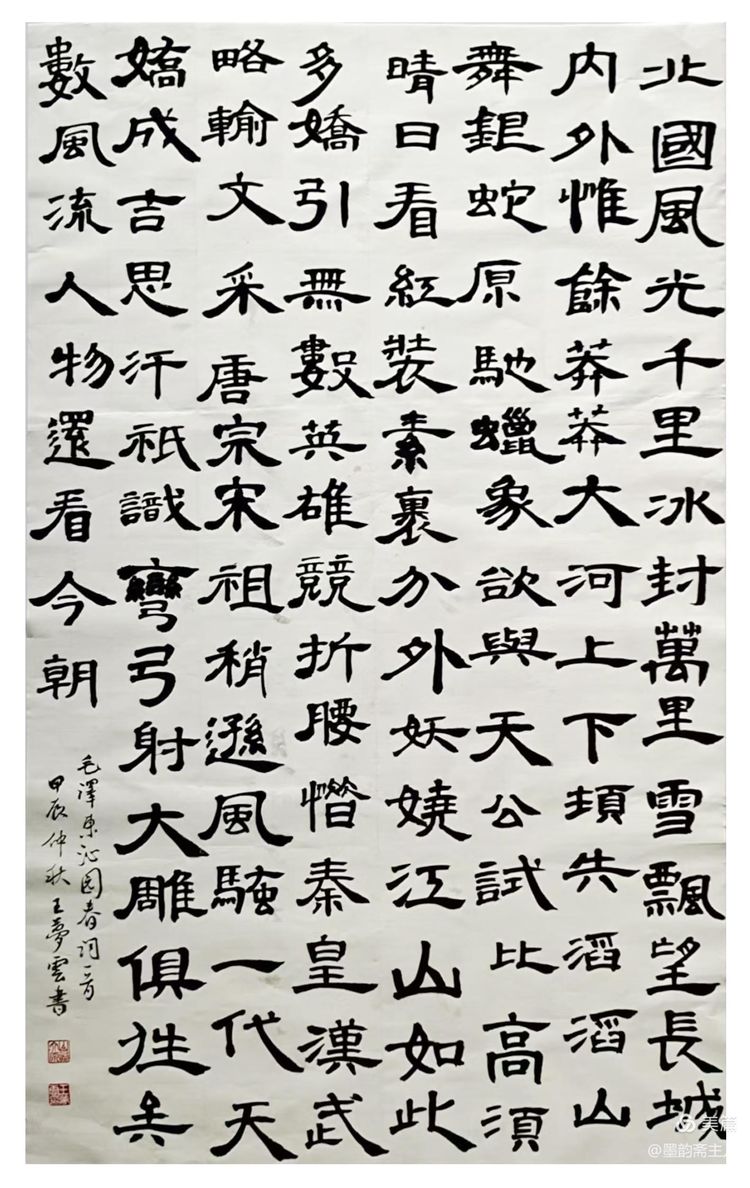 北國風光千里冰封萬里雪飄望長城
内外惟餘莽莽大河上下頓失滔滔山
舞銀蛇原馳蠟象欲與天公試比高須
晴日看紅裝素裹分外妖嬈江山如此
多嬌引無數英雄競折腰惜秦皇漢武
略輸文采唐宗宋祖稍遜風騷一代天
嬌成吉思汗祇識彎弓射大雕俱往矣
數風流人物還看今朝
毛澤東沁园春詞一首
甲辰仲秋王夢雲書
美篇
@墨韵斋主人